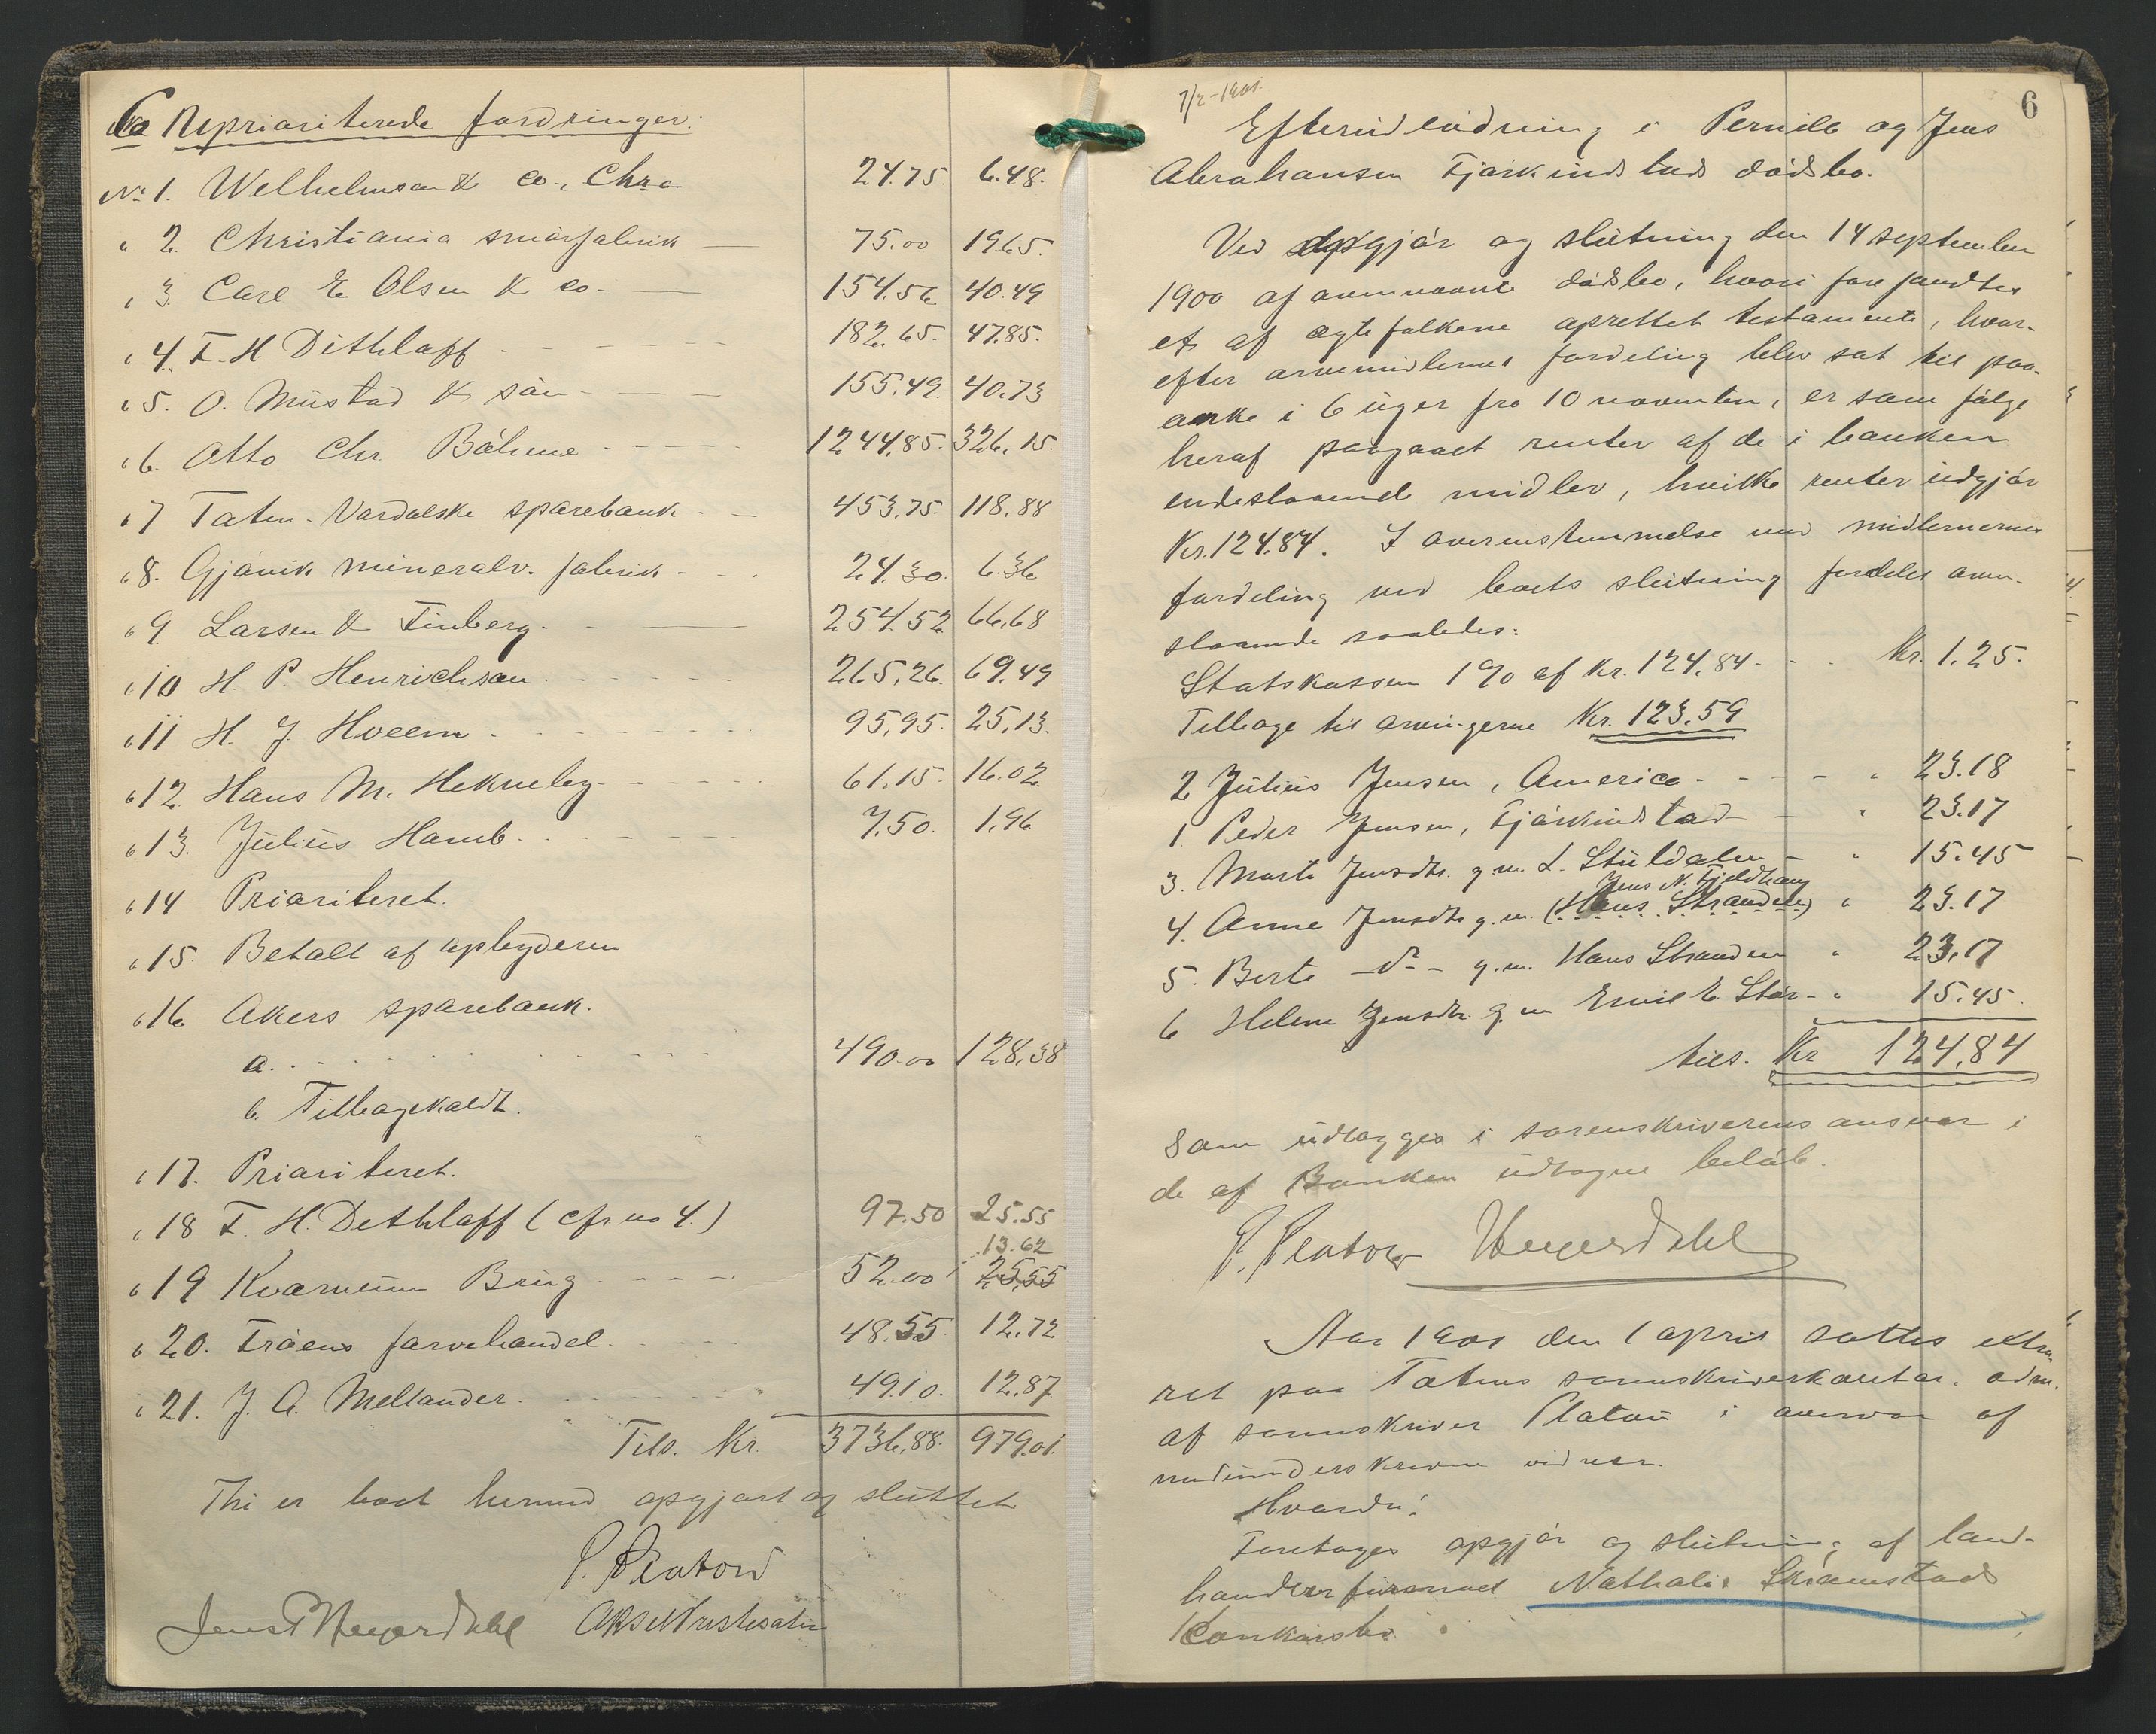 Uprioriterede fordringer:
No 1. Welhelmsen & co., Chra. 24.75. 6.48.
" 2. Christiania smørfabrik 75.00 19.65.
" 3 Carl E. Olsen & co. 154.56 40.49
" 4. F. H Dithloff 182.65. 47.85.
" 5. O. Mustad & søn 155.49. 40.73
" 6. Otto Chr. Bøhme 1244,85. 326.15.
" 7 Toten-Vardalske sparebank 453.75. 118.88
" 8. Gjøvik mineralv. fabrik 24.30. 6.36
" 9. Larsen & Finberg. 254.52 66,68
" 10 H. P. Henrichsen 265,26. 69.49
" 11 H. J. Hveem 95,95. 25,13.
" 12. Hans M. Hekneby 61.15. 16.02
" 13. Julius Hamb. 7.50. 1,96
" 14 Prioriteret.
" 15. Betalt af opbyderen
" 16. Akers sparebank.
a. 490.00 128,38
b. Tilbagekaldt.
" 17. Prioriteret.
" 18 F. H. Dethloff (cfr no 4.) 97.50 25.55
13.62
" 19 Kværnum Brug 52.00 25,55
" 20. Frøens farvehandel. 48.55. 12.72
" 21. J. A. Mellander. 49.10. 12.87.
Tils. Kr. 3736,88. 979.01.
Thi er boet hermed opgjort og sluttet
P. Platou
Jens P Heyerdahl Aksel
7/2-1901.
6
Efterindledning i Pernille og Jens
Abrahansen Fjørkindstads dødsbo.
Ved opgjør og slutning den 14 september
1900 af ovennævnte dødsbo, hvori forefandtes
et af ægtefolkene oprettet testamente, hvor-
efter arvemidlernes fordeling blev sat til paa-
anke i 6 uger fra 10 november, er som følge
heraf paagaaet renter af de i banken
indestaaende midler, hvilke renter udgjør
Kr. 124.84. I overenstemmelse med midlernes
fordeling ved boets slutning fordeles oven-
staaende saaledes:
Statskassen 1% af Kr. 124,84 Kr. 1.25.
Tilbage til arvingerne Kr. 123.59
2 Julius Jensen, America " 23.18
1. Peder Jensen, Fjørkindstad " 23.17
3. Marte Jensdtr. g. m. L. Stuldalen " 15.45
Jens N. Fjeldhaug
4. Anne Jensdtr g. m. (Hans Stranden) " 23.17
5. Berte -do- g. m. Hans Stranden " 23.17
6 Helene Jensdtr g. m Emil E. Stør " 15.45.
tils. Kr 124.84
Som udlægges i sorenskriverens ansvar i
de af Banken udtagne beløb.
P. Platou Heyerdahl
Aar 1901 den 1 april sattes extra
ret paa Totens sorenskriverkontor, adm.
af sorenskriver Platou i overvær af
medunderskrivne vidner.
Hvorda:
Foretages opgjør og slutning af land-
handler Nathalis Skramstads
Konkursbo